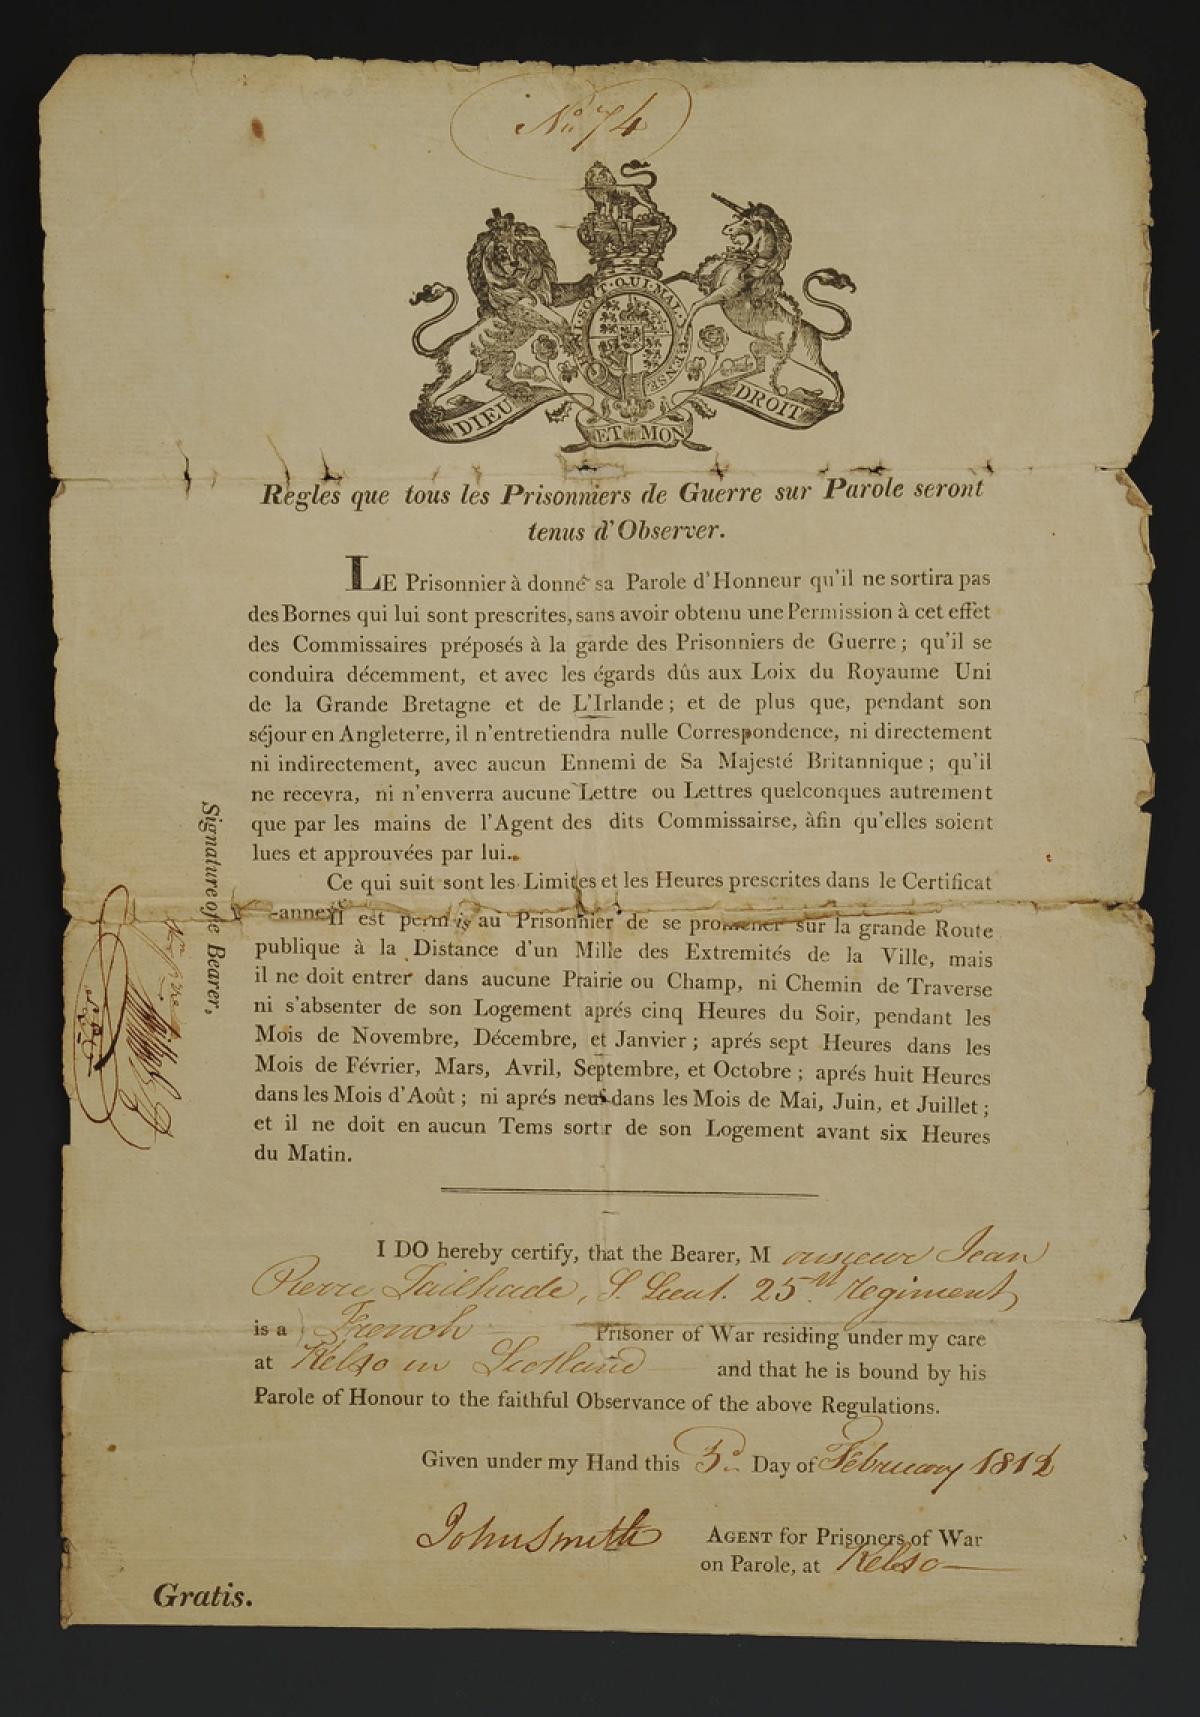 No. 74
HONI·SOIT·QUI·MAL·Y·PENSE
DIEU ET MON DROIT
Regles que tous les Prisonniers de Guerre sur Parole seront
tenus d'Observer.
LE Prisonnier à donné sa Parole d'Honneur qu'il ne sortira pas
des Bornes qui lui sont prescrites, sans avoir obtenu une Permission à cet effet
des Commissaires préposés à la garde des Prisonniers de Guerre; qu'il se
conduira décemment, et avec les égards dûs aux Loix du Royaume Uni
de la Grande Bretagne et de L'Irlande; et de plus que, pendant son
séjour en Angleterre, il n'entretiendra nulle Correspondence, ni directement
ni indirectement, avec aucun Ennemi de Sa Majesté Britannique; qu'il
ne recevra, ni n'enverra aucune Lettre ou Lettres quelconques autrement
que par les mains de l'Agent des dits Commissairse, àfin qu'elles soient
lues et approuvées par lui.
Ce qui suit sont les Limites et les Heures prescrites dans le Certificat
-annexé
Il est permis au Prisonnier de se promener sur la grande Route
publique à la Distance d'un Mille des Extremités de la Ville, mais
il ne doit entrer dans aucune Prairie ou Champ, ni Chemin de Traverse
ni s'absenter de son Logement aprés cinq Heures du Soir, pendant les
Mois de Novembre, Décembre, et Janvier; aprés sept Heures dans les
Mois de Février, Mars, Avril, Septembre, et Octobre; aprés huit Heures
dans les Mois d'Août; ni aprés neuf dans les Mois de Mai, Juin, et Juillet;
et il ne doit en aucun Tems sortir de son Logement avant six Heures
du Matin.
Signature of e Bearer,
I DO hereby certify, that the Bearer, Monsieur Jean
Pierre Tailhade, S. Lieut. 25th regiment
is a French Prisoner of War residing under my care
at Kelso in Scotland and that he is bound by his
Parole of Honour to the faithful Observance of the above Regulations.
Given under my Hand this 3d. Day of February 1812
John Smith
AGENT for Prisoners of War
on Parole, at Kelso
Gratis.